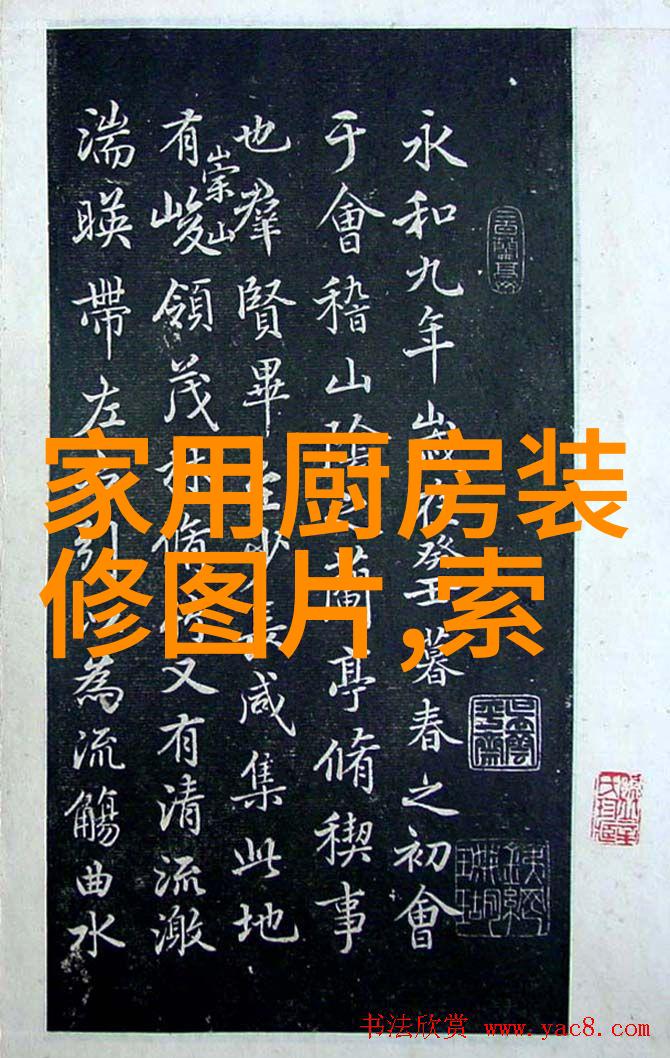 永和九年歲在癸丑暮春之初會
于會稽山陰之蘭亭脩稧事
也羣賢畢至少長咸集此地
有崇山峻領茂林脩竹又有清流激
湍暎帶左右引以為流觴曲水
家用厨房装
修图片,索
书法欣赏 www.yac8.com